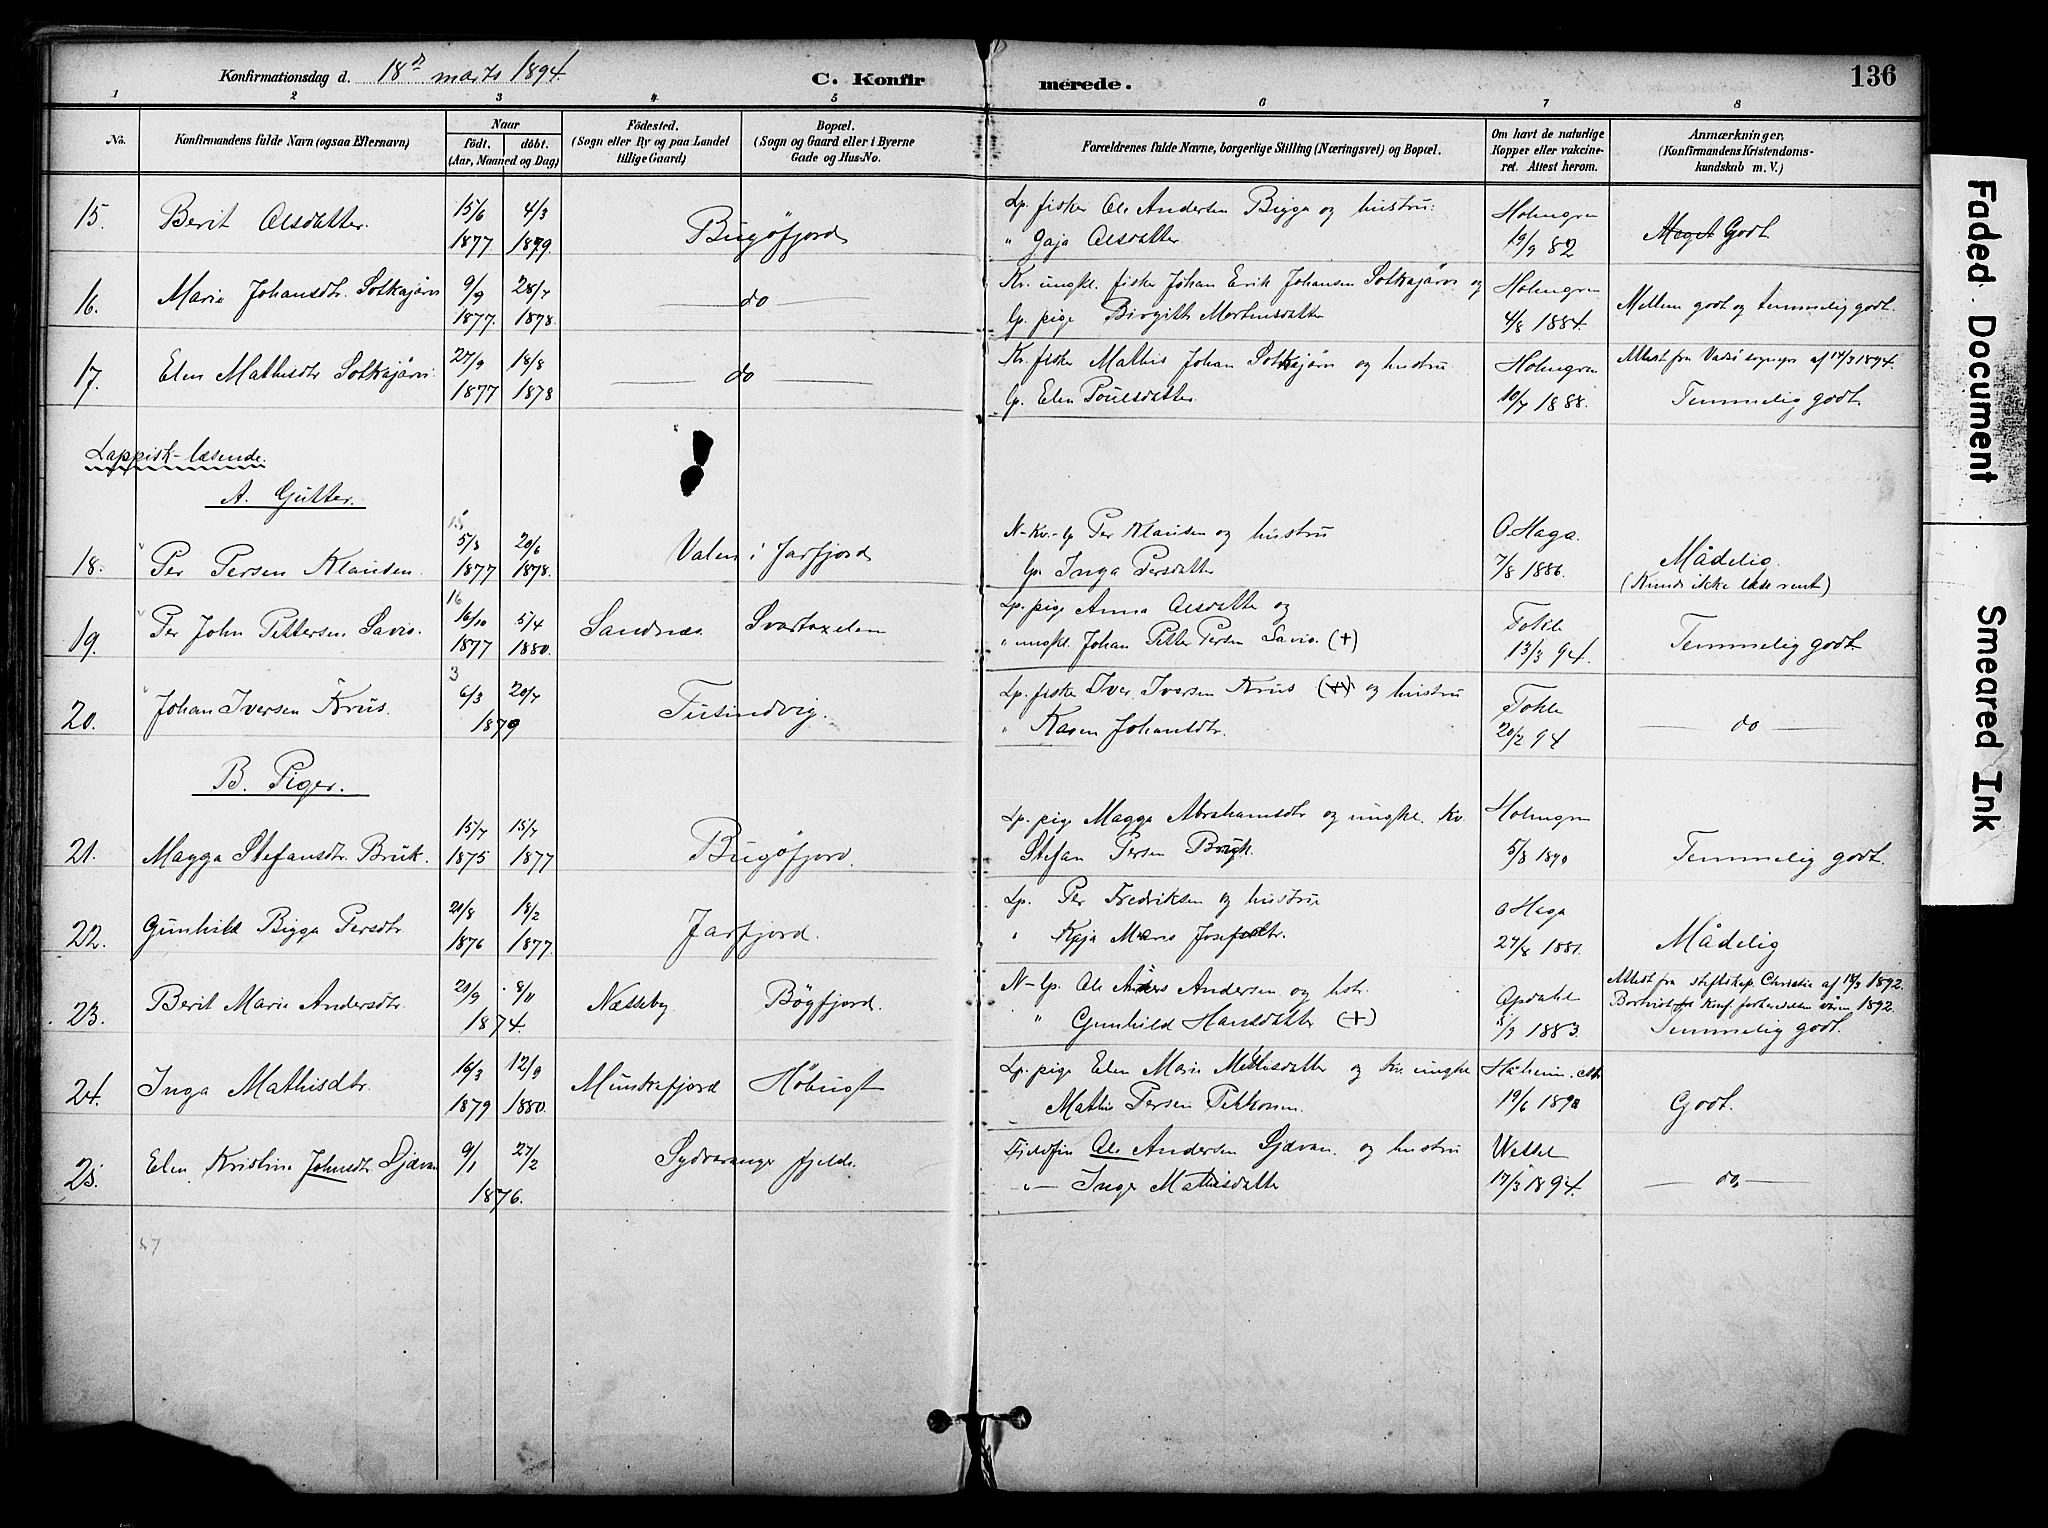 Konfirmationsdag d. 18de marts 1894. C. Konfirmerede. 136
1 2 3 4 5 6 7 8
No. Konfirmandens fulde Navn (ogsaa Efternavn) Naar Födt. döbt. (Aar, Maaned og Dag) Födested. (Sogn eller By og paa Landet tillige Gaard) Bopæl. (Sogn og Gaard eller i Byerne Gade og Hus-No. Forældrenes fulde Navne, borgerlige Stilling (Næringsvei) og Bopæl. Om havt de naturlige Kopper eller vaccineret. Attest herom. Anmærkninger, (Konfirmandens Kristendomskundskab m. V.)
15. Berit Olsdatter. 15/6 1877 4/3 1879 Bugöfjord Lp. fisker Ole Andersen Bigga og hustru:
" Gaja Olsdatter Holmgren 19/9 82 Meget Godt.
16. Marie Johansdtr. Sotkajärvi 9/9 1877. 28/7 1878. do Kv. ungkl. fisker Johan Erik Johansen Sotkajärvi og
lp. pige Birgitte Mortensdatter Holmgren 4/8 1884. Mellem godt og temmelig godt.
17. Elen Mathisdtr Sotkajärvi. 27/9 1877 18/8 1878 do Kv. fisker Mathis Johan Sotkajärvi og hustru
lp. Elen Poulsdatter. Holmgren 10/7 1888. Attest fra Vadsö sogнepr. af 14/3 1894.
Temmelig godt.
Lappisk-læsende.
A. Gutter.
18. Per Persen Klausen. 5/3 1877 20/6 1878. Valen i Jarfjord N-Kv.-lp Per Klausen og hustru
lp. Inga Persdatter O Haga. 7/8 1886. Mådelig.
(Kunde ikke læse rent)
19. Per John Pettersen Savio. 16
16/10 1877 5/4 1880. Sandnæs. Svartaxelen Lp. pige Anna Olsdatter og
" ungkl. Johan Petter Persen Savio. (+) Tokle 13/3 94. Temmelig godt.
20. Johan Iversen Krus. 3
6/3 20/7 1879 Tusindvig. Lp. fisker Iver Iversen Krus (+) og hustru
" Karen Johansdtr. Tokle 20/2 94 do
B. Piger.
21. Magga Stefansdtr. Bruk. 15/7 1875 15/7 1877 Bugöfjord. Lp. pige Magga Abrahamsdtr og ungkl. Kv.
Stefan Persen Bruk. Holmgren 5/8 1890 Temmelig godt.
22. Gunhild Bigga Persdtr 20/8 1876 18/2 1877. Jarfjord. Lp. Per Fredriksen og hustru
" Kaja Marie Josefsdtr. O Haga 27/8 1881. Mådelig
23. Berit Marie Andersdtr. 20/9 8/11 1874. Næsseby Bögfjord. N-lp. Ole Anders Andersen og hstr.
" Gunhild Hansdatter (+) Opdahl 5/9 1883. Attest fra stiftskap. Christie af 18/3 1892.
Bortvist fra Konf. forberedelsen våren 1892.
Temmelig godt.
24. Inga Mathisdtr. 16/3 1879 12/9 1880. Munkefjord Höbugt Lp. pige Elen Marie Mathisdatter og kv. ungkl
Mathis Persen Pekkonen. 19/6 1890 Godt.
25. Elen Kristine Johnsdtr Sjævan 9/1 27/2 1876. Sydvaranger fjelde. Fjeldfin Ole Andersen Sjævan. og hustru
" Inger Mathisdatter Wessel 17/3 1894. do.
Faded Document
Smeared Ink